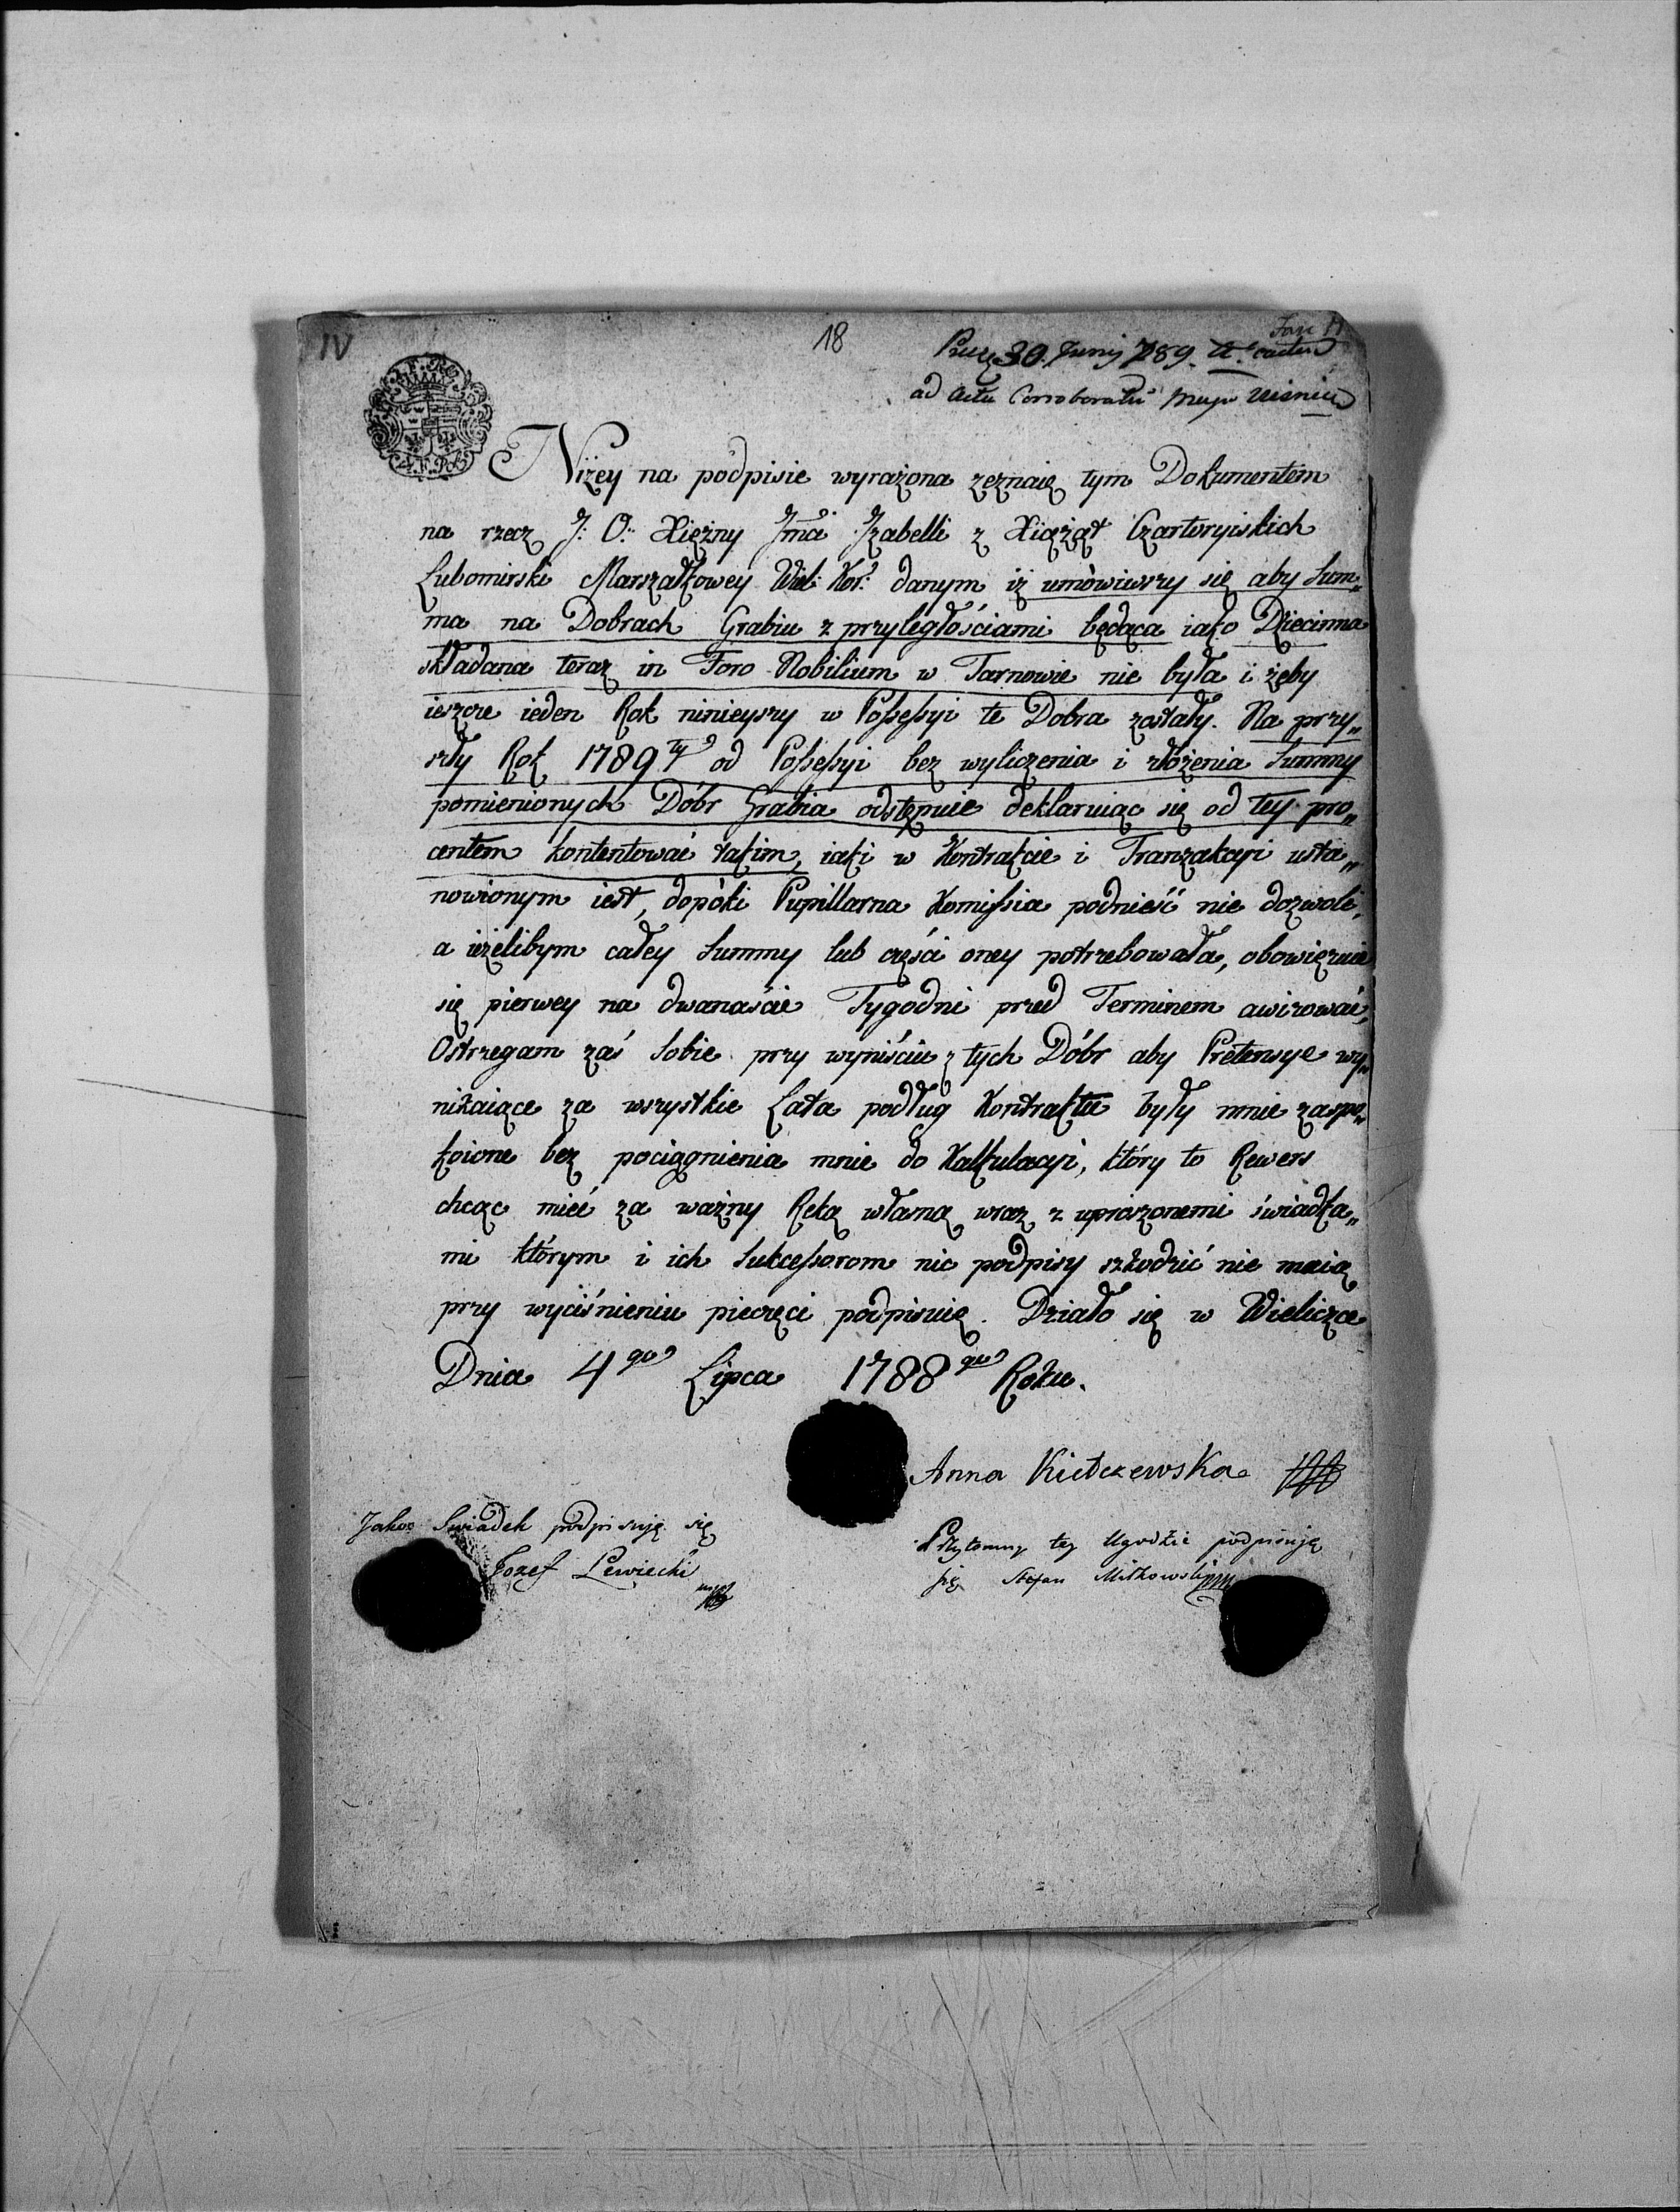 IV
18
30. Junij 789.
ad Acta
Niżey na podpisie wyrażona zeznaię tym Dokumentem
na rzecz J: O: Xiężny Jmći Jzabelli z Xiążąt Czartoryiskich
Lubomirski Marszałkowey Wiel: Kor: danym iż umówiwszy się aby Sum„
ma na Dobrach Grabiu z przyległościami będąca iako Dziecinna
składana teraz in Foro Nobilium w Tarnowie nie była i żeby
ieszcze ieden Rok ninieyszy w Possessyi te Dobra zostały. Na przy„
szły Rok 1789ty od Possessyi bez wyliczenia i złożenia Summy
pomienionych Dóbr Grabia odstępuie deklaruiąc się od tey pro„
centem kontentować takim, iaki w Kontrakcie i Tranzakcyi usta„
nowionym iest, dopóki Pupillarna Komissia podnieść nie dozwoli,
a ieżelibym całey Summy lub części oney potrzebowała, obowięzuie
się pierwey na dwanaście Tygodni przed Terminem awizować,
Ostrzegam zaś sobie przy wyniściu z tych Dóbr aby Pretensye wy„
nikaiące za wszystkie Lata podług Kontraktu były mnie zaspo„
koione bez pociągnienia mnie do Kalkulacyi, który to Rewers
chcąc mieć za ważny Ręką własną wraz z uproszonemi świadka„
mi którym i ich Sukcessorom nic podpisy szkodzić nie maią
przy wyciśnieniu pieczęci podpisuię. Działo się w Wieliczce
Dnia 4go Lipca 1788go Roku.
Anna Kiełczewska
Jako Swiadek podpisuję się
Jozef Lewiecki
mp
Przytomny tey Ugodzie podpisuję
się Stefan Miłkowski mp